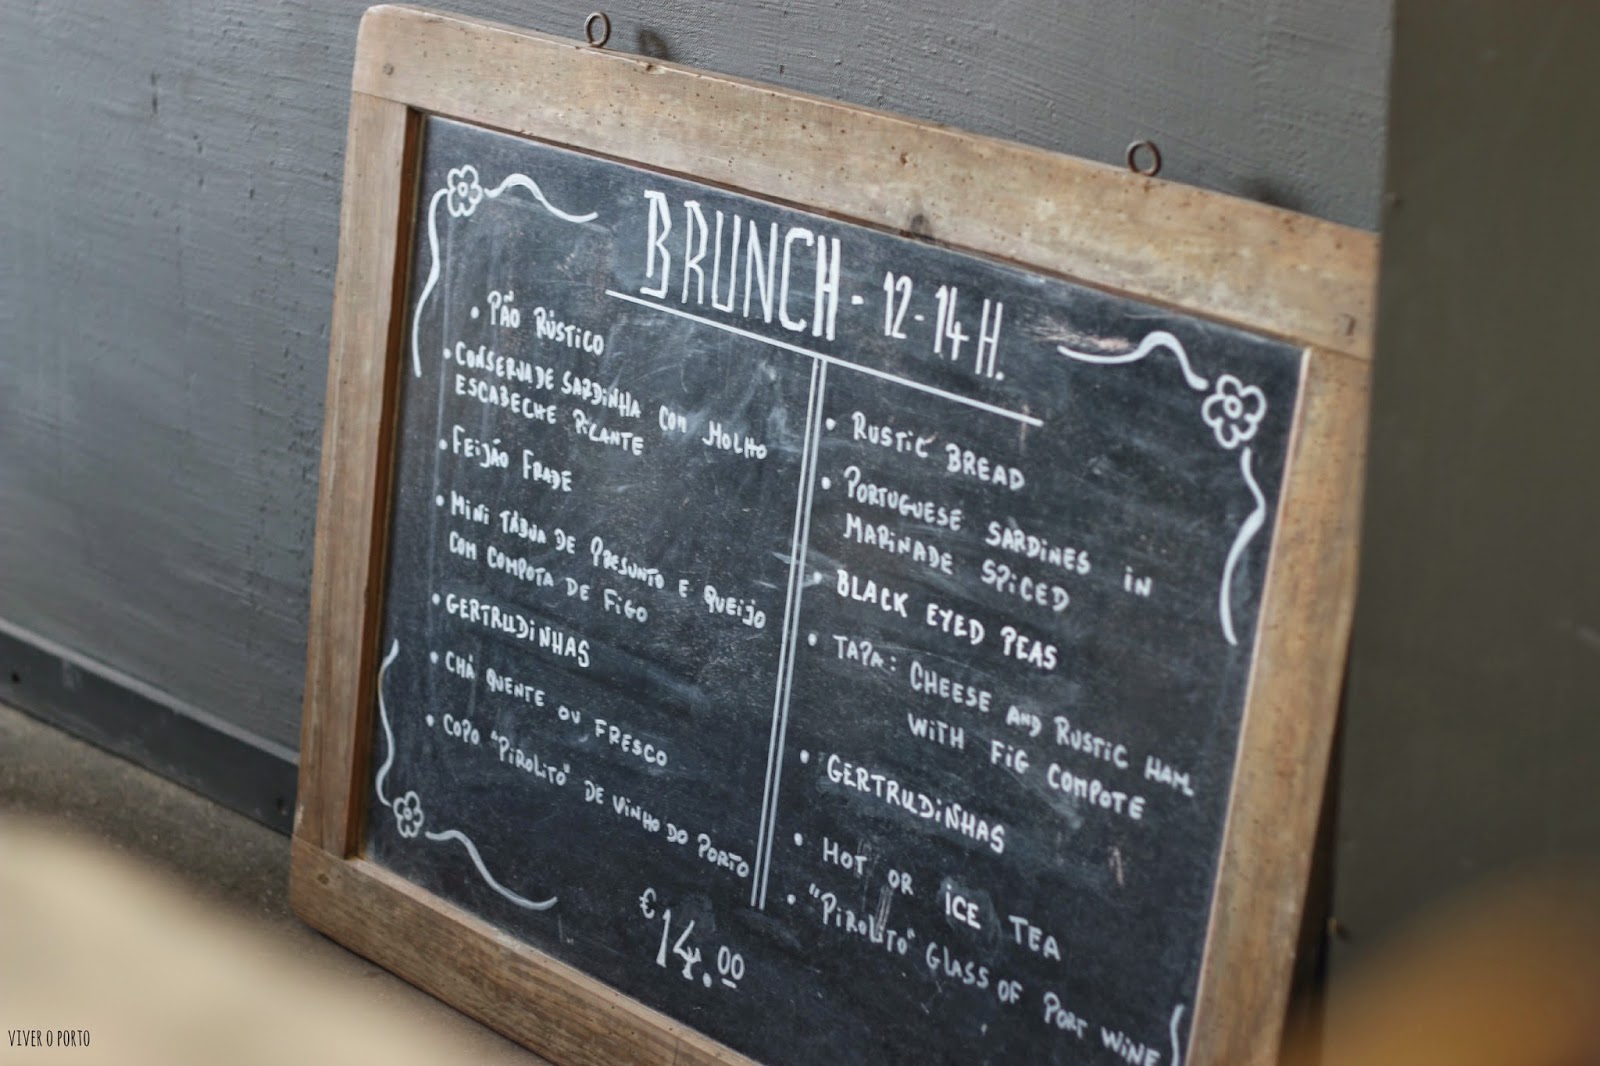 BRUNCH - 12-14 H.
• PÃO RÚSTICO
• CONSERVA DE SARDINHA COM MOLHO
ESCABECHE PICANTE
• FEIJÃO FRADE
• MINI TÁBUA DE PRESUNTO E QUEIJO
COM COMPOTA DE FIGO
• GERTRUDINHAS
• CHÁ QUENTE OU FRESCO
• COPO "PIROLITO" DE VINHO DO PORTO
• RUSTIC BREAD
• PORTUGUESE SARDINES IN
MARINADE SPICED
• BLACK EYED PEAS
• TAPA: CHEESE AND RUSTIC HAM
WITH FIG COMPOTE
• GERTRUDINHAS
• HOT OR ICE TEA
• "PIROLITO" GLASS OF PORT WINE
€ 14.00
VIVER O PORTO